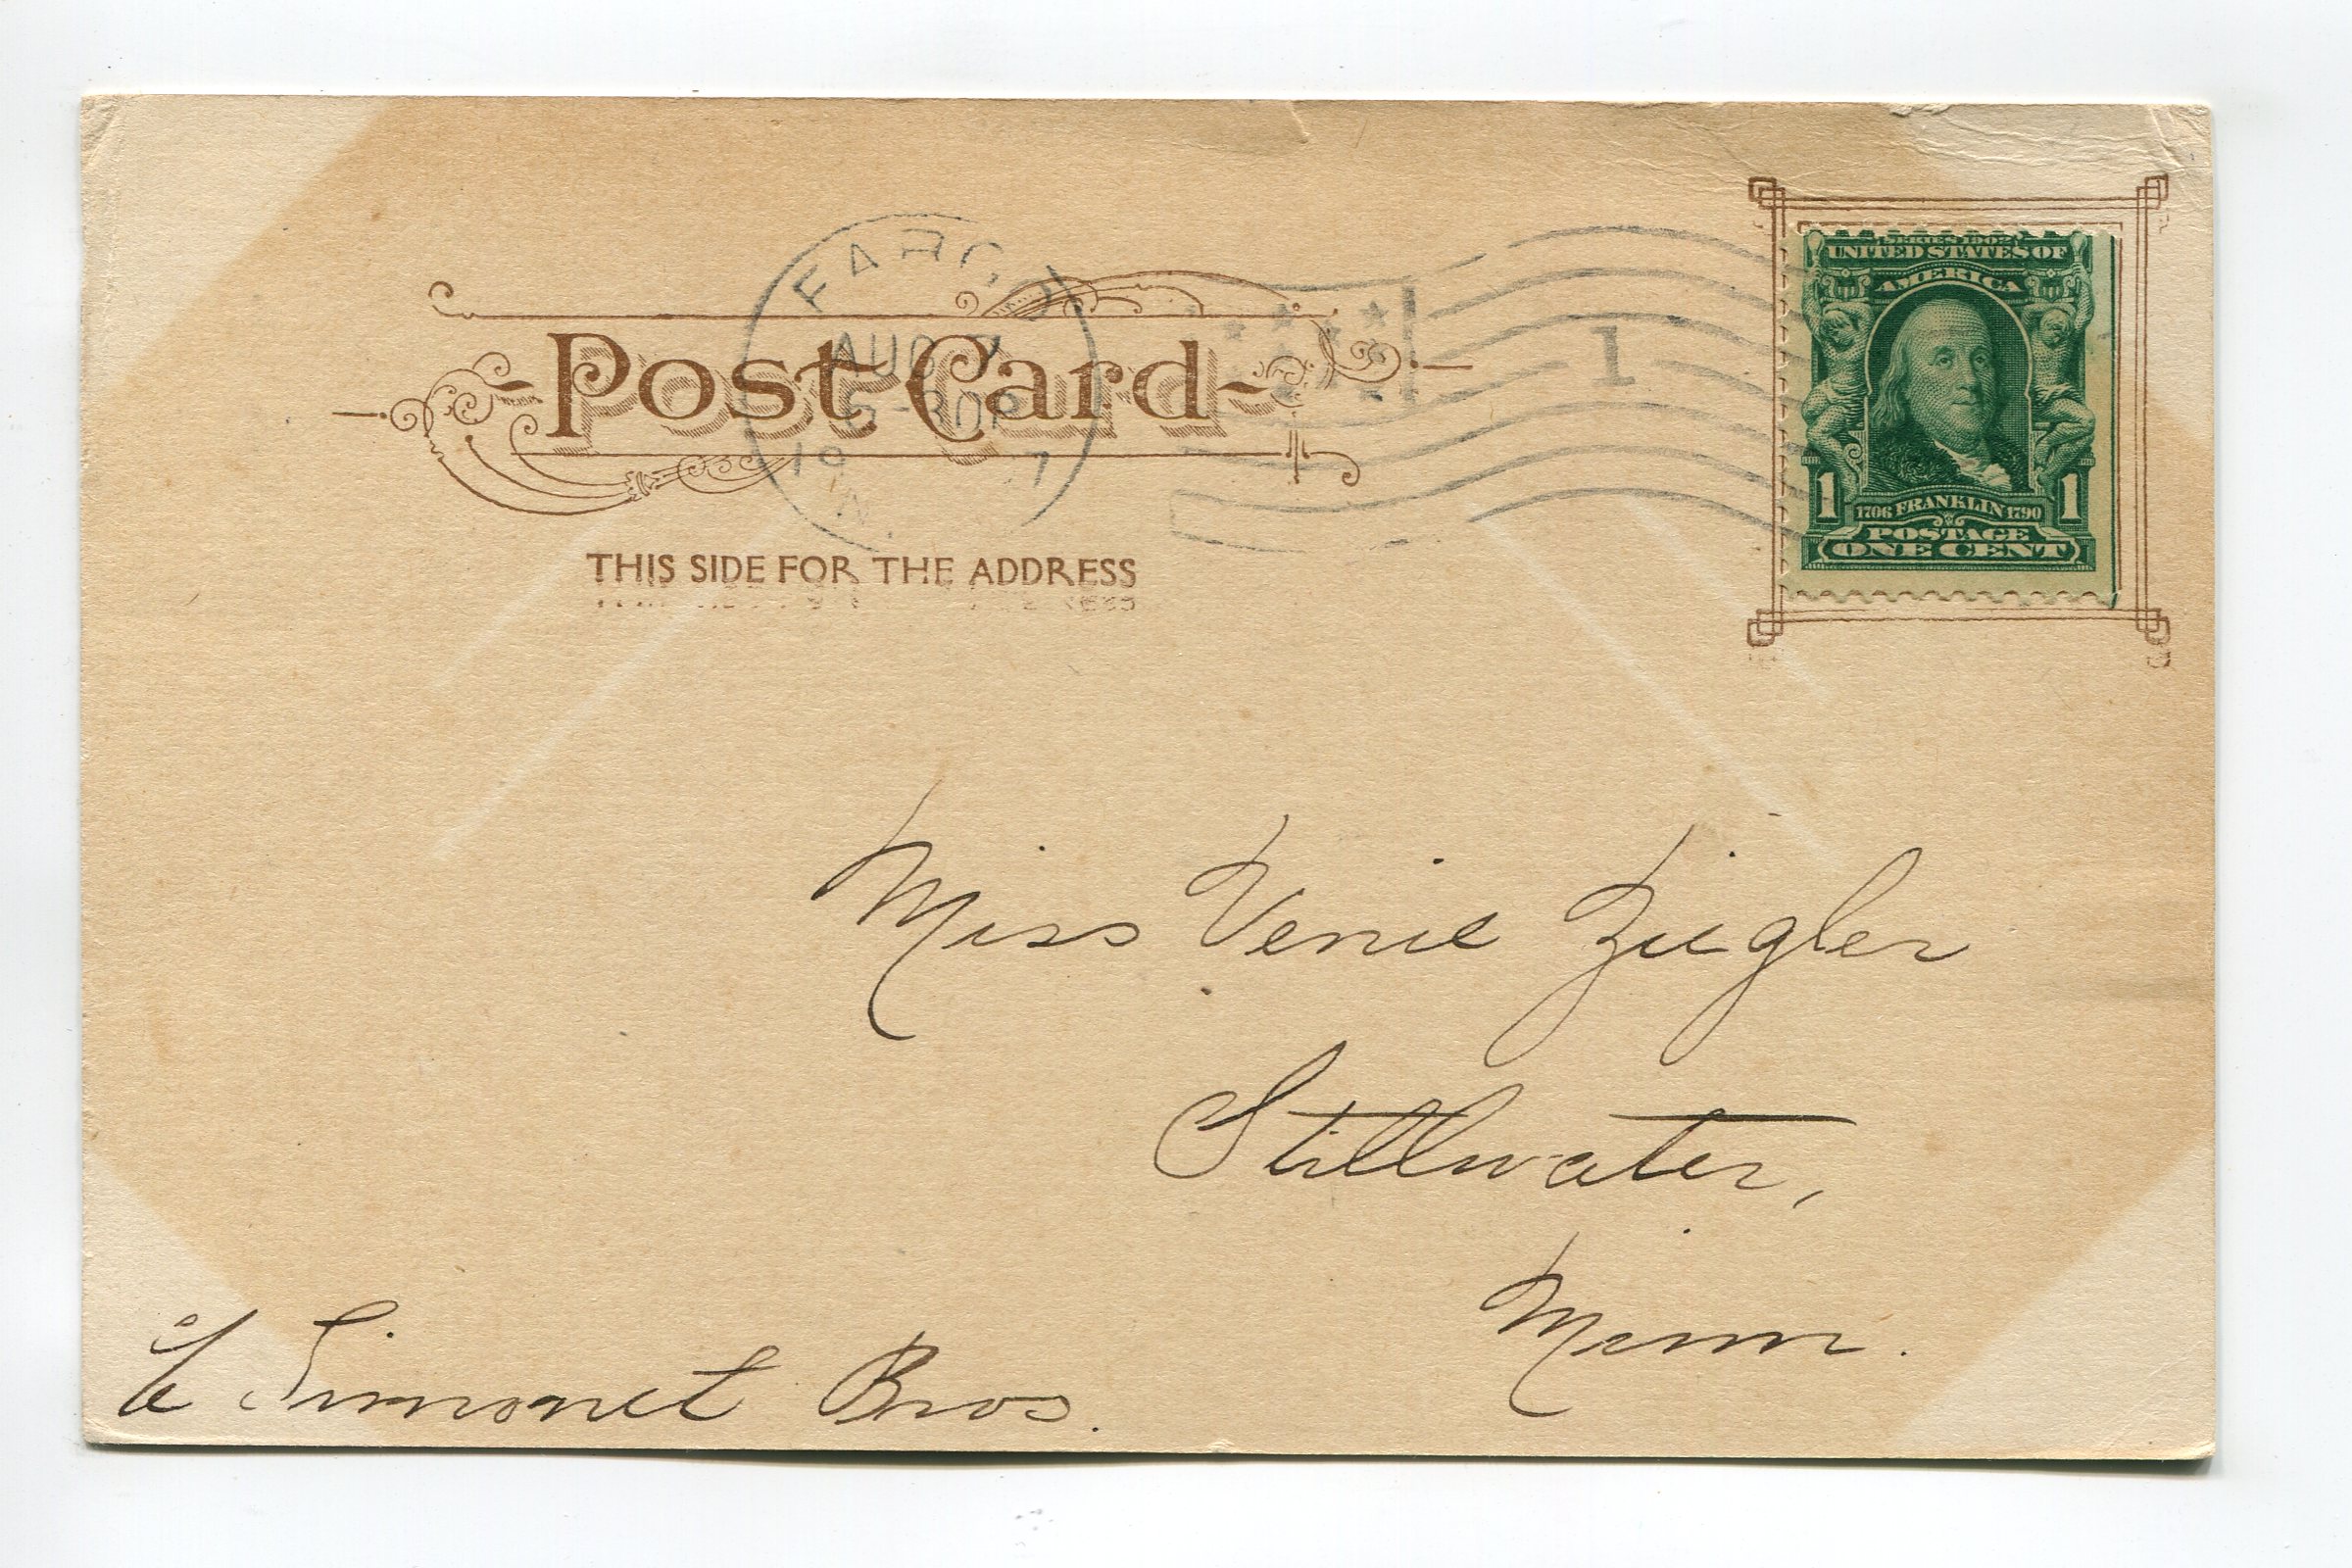 FARGO
AUG 7
-30P
19 7
N.
Post Card
THIS SIDE FOR THE ADDRESS
1
SERIES 1902
UNITED STATES OF
AMERICA
1 1706 FRANKLIN 1790 1
POSTAGE
ONE CENT
Miss Venie Ziegler
Stillwater,
Minn.
c/o Simonet Bros.